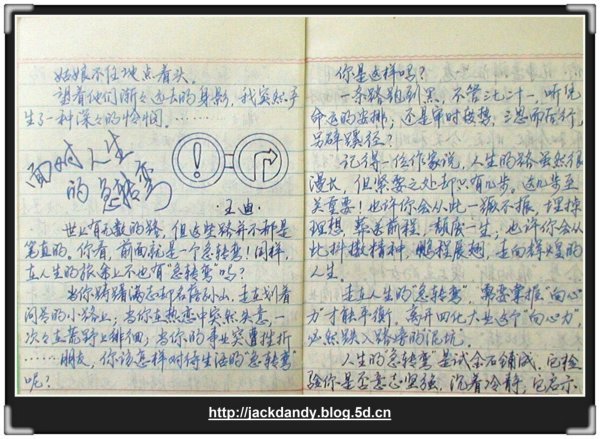 姑娘不住地点着头。
望着他们渐々远去的身影，我突然产
生了一种深々的怅惘。………
面对人生
的急转弯
·王迪·
世上有无数的路，但这些路并不都是
笔直的。你看，前面就是一个急转弯！同样，
在人生的旅途上不也有“急转弯”吗？
当你踌躇满志却名落孙山，走在划着
问号的小路上；当你在热恋中突然失意，一
次々在荒野上徘徊；当你的事业突遭挫折
……朋友，你该怎样对待生活的“急转弯”
呢？
你是这样吗？
一条路跑到黑，不管三七二十一，听凭
命运的安排，还是审时度势，三思而后行，
另辟蹊径？
记得一位作家说，人生的路虽然很
漫长，但紧要之处却只有几步。这几步至
关重要！也许你会从此一蹶不振，埋掉
理想，葬送前程，颓废一生，也许你会从
此抖擞精神，鹏程展翅，走向辉煌的
人生。
走在人生的“急转弯”，需要掌握“向心
力”才能平衡，离开四化大业这个“向心力”，
必然跌入路旁的泥坑。
人生的急转弯是试金石铺成，它检
验你是否意志坚强，沉着冷静，它启示
http://jackdandy.blog.5d.cn